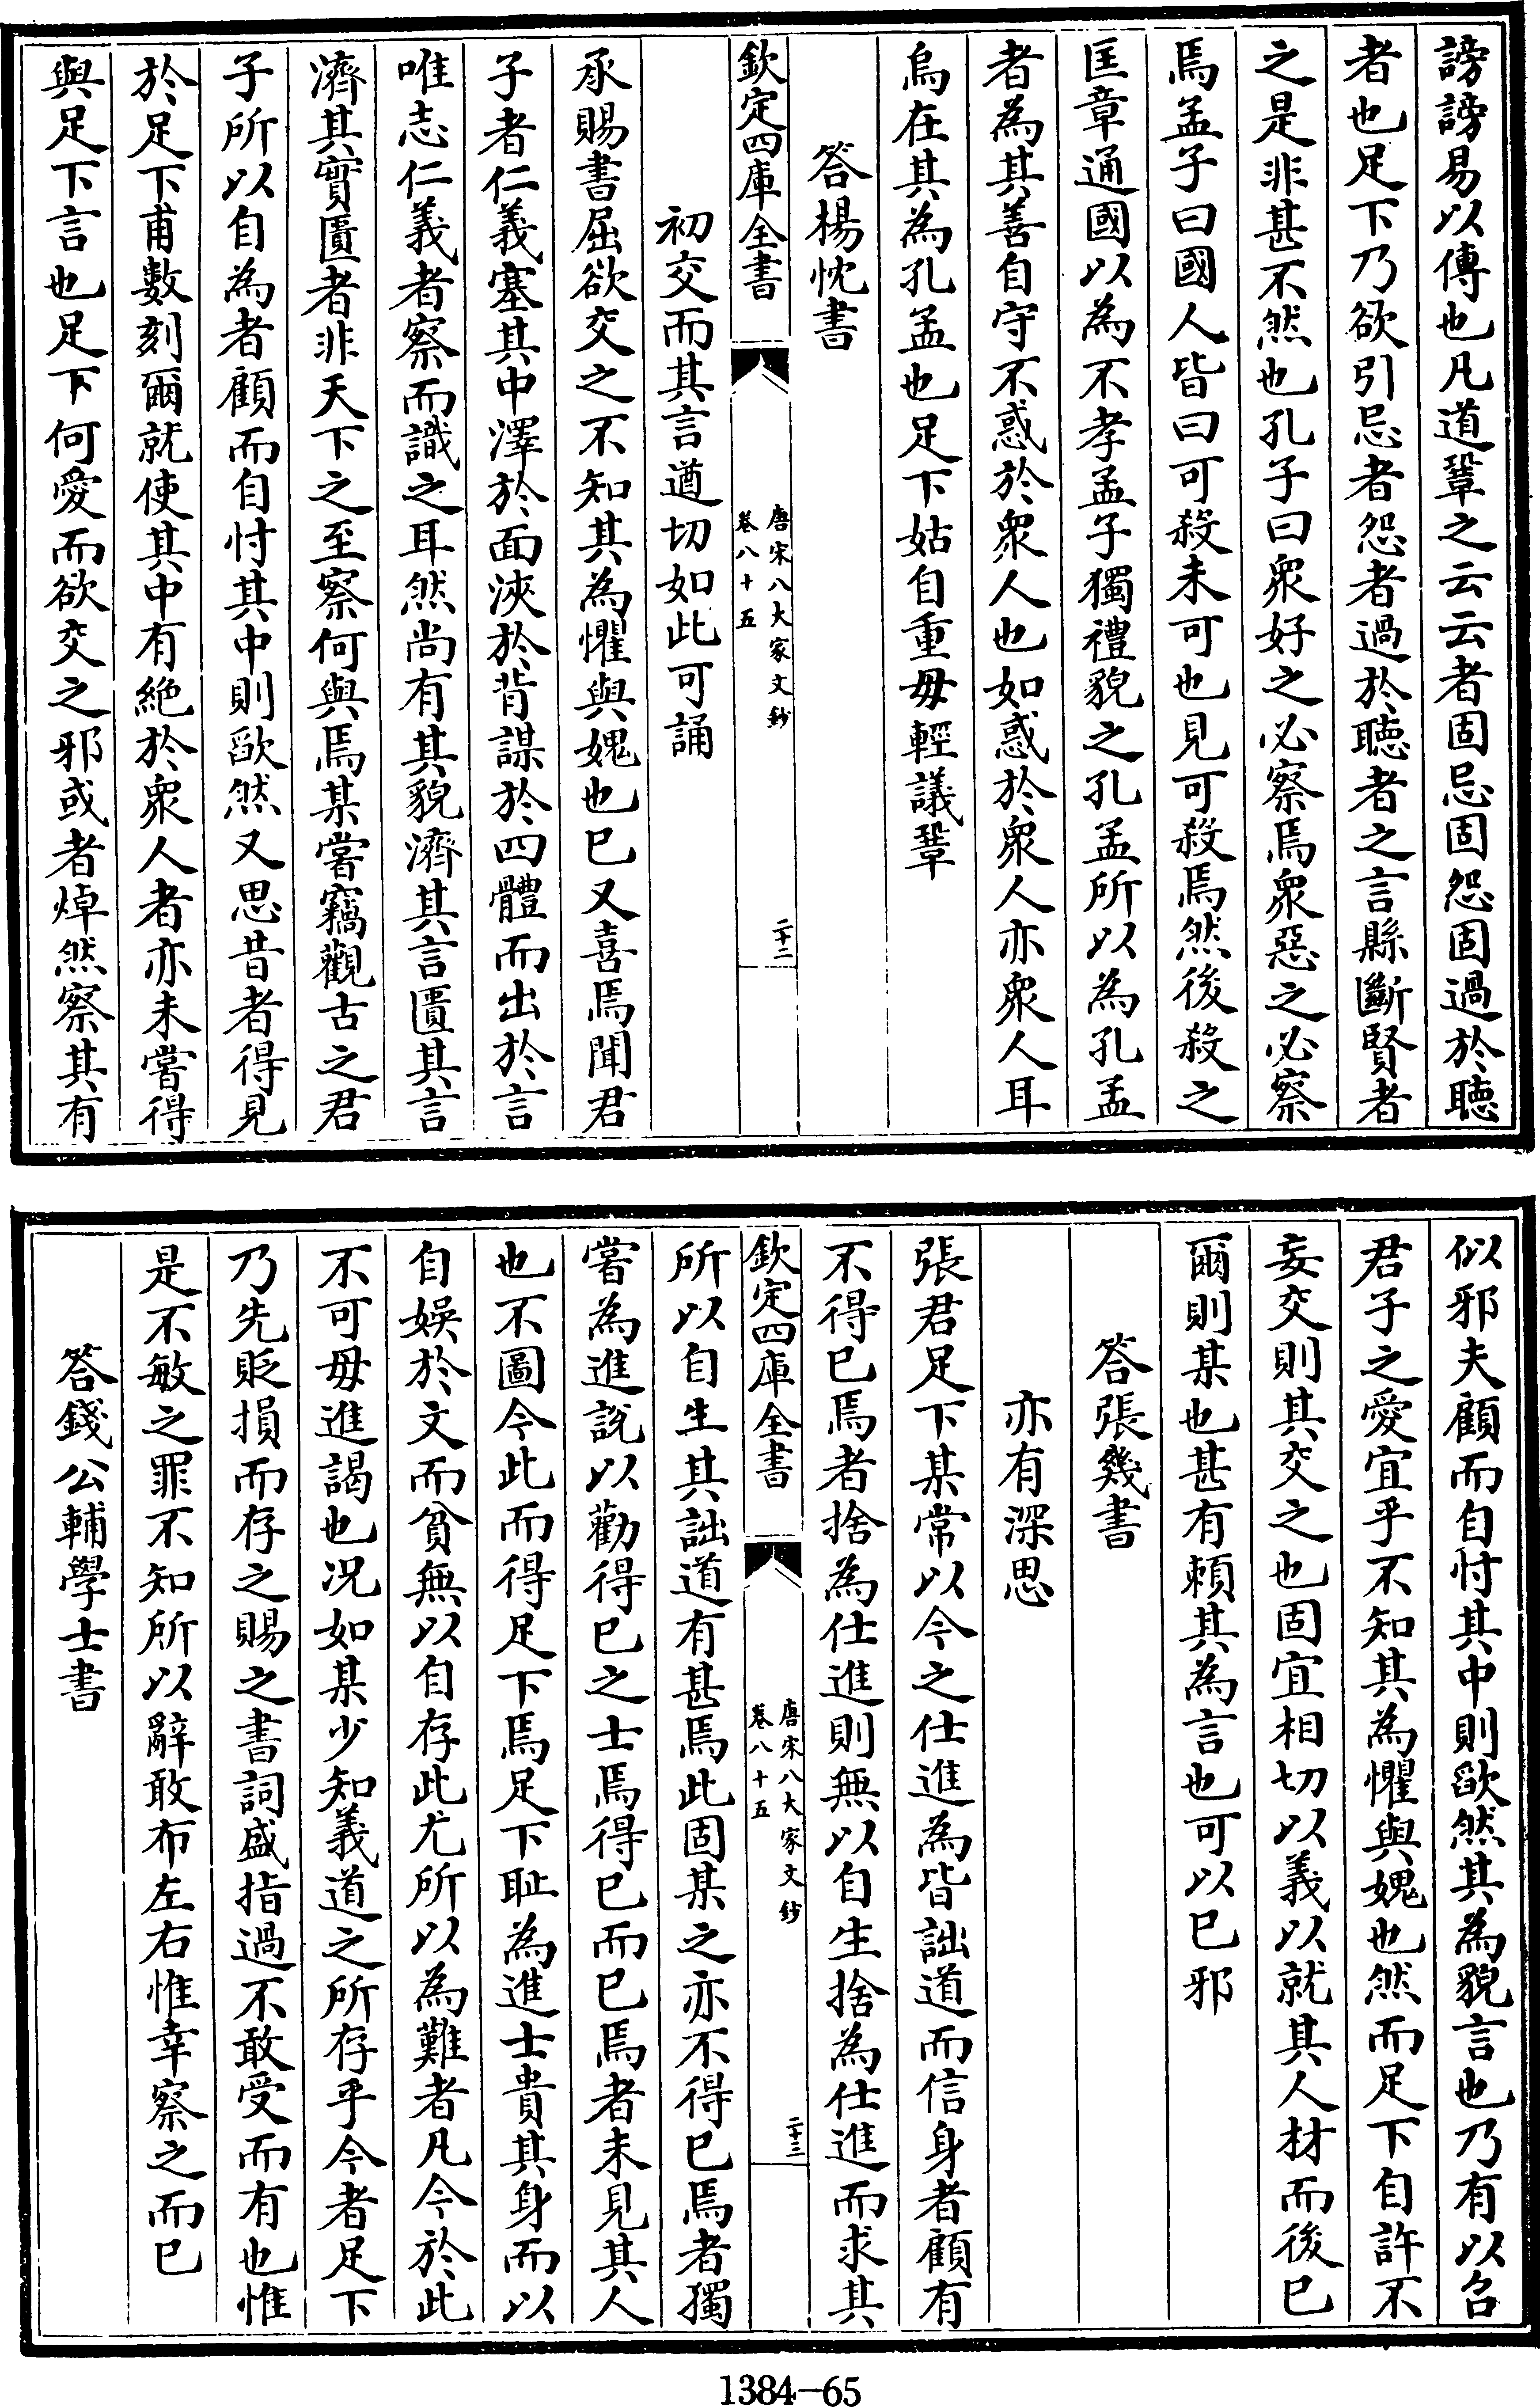 謗謗易以傳也凡道鞏之云云者固忌固怨固過於聽
者也足下乃欲引忌者怨者過於聽者之言縣斷賢者
之是非甚不然也孔子曰衆好之必察焉衆惡之必察
焉孟子曰國人皆曰可殺未可也見可殺焉然後殺之
匡章通國以為不孝孟子獨禮貌之孔孟所以為孔孟
者為其善自守不惑於衆人也如惑於衆人亦衆人耳
烏在其為孔孟也足下姑自重毋輕議鞏
答楊忱書
欽定四庫全書
唐宋八大家文鈔
卷八十五
二十二
初交而其言遒切如此可誦
承賜書屈欲交之不知其為懼與媿也已又喜焉聞君
子者仁義塞其中澤於面浹於背謀於四體而出於言
唯志仁義者察而識之耳然尚有其貌濟其言匱其言
濟其實匱者非天下之至察何與焉某嘗竊觀古之君
子所以自為者顧而自忖其中則欿然又思昔者得見
於足下甫數刻爾就使其中有絕於衆人者亦未嘗得
與足下言也足下何愛而欲交之邪或者焯然察其有
似邪夫顧而自忖其中則欿然其為貌言也乃有以召
君子之愛宜乎不知其為懼與媿也然而足下自許不
妄交則其交之也固宜相切以義以就其人材而後已
爾則某也甚有賴其為言也可以已邪
答張幾書
亦有深思
張君足下某常以今之仕進為皆詘道而信身者顧有
不得已焉者捨為仕進則無以自生捨為仕進而求其
欽定四庫全書
唐宋八大家文鈔
卷八十五
二十三
所以自生其詘道有甚焉此固某之亦不得已焉者獨
嘗為進說以勸得已之士焉得已而已焉者未見其人
也不圖今此而得足下焉足下恥為進士貴其身而以
自娛於文而貧無以自存此尤所以為難者凡今於此
不可毋進謁也况如某少知義道之所存乎今者足下
乃先貶損而存之賜之書詞盛指過不敢受而有也惟
是不敏之罪不知所以辭敢布左右惟幸察之而已
答錢公輔學士書
1384-65